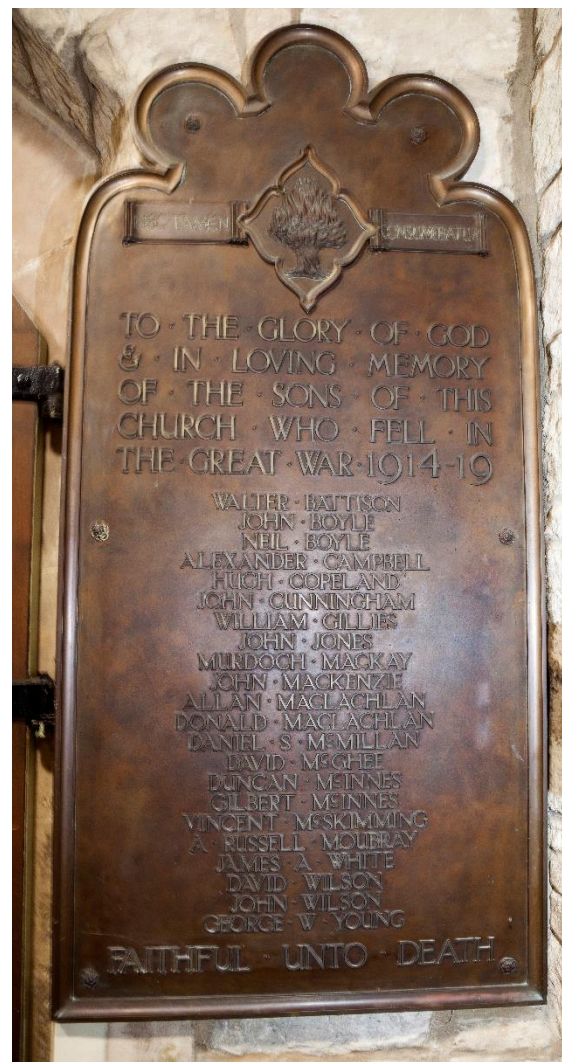 NEC TAMEN
CONSUMEBATUR
TO · THE · GLORY · OF · GOD
& · IN · LOVING · MEMORY
OF · THE · SONS · OF · THIS
CHURCH · WHO · FELL · IN
THE · GREAT · WAR · 1914-19
WALTER · BATTISON
JOHN · BOYLE
NEIL · BOYLE
ALEXANDER · CAMPBELL
HUGH · COPELAND
JOHN · CUNNINGHAM
WILLIAM · GILLIES
JOHN · JONES
MURDOCH · MACKAY
JOHN · MACKENZIE
ALLAN · MACLACHLAN
DONALD · MACLACHLAN
DANIEL · S · McMILLAN
DAVID · McGHEE
DUNCAN · McINNES
GILBERT · McINNES
VINCENT · McSKIMMING
A · RUSSELL · MOUBRAY
JAMES · A · WHITE
DAVID · WILSON
JOHN · WILSON
GEORGE · W · YOUNG
FAITHFUL · UNTO · DEATH